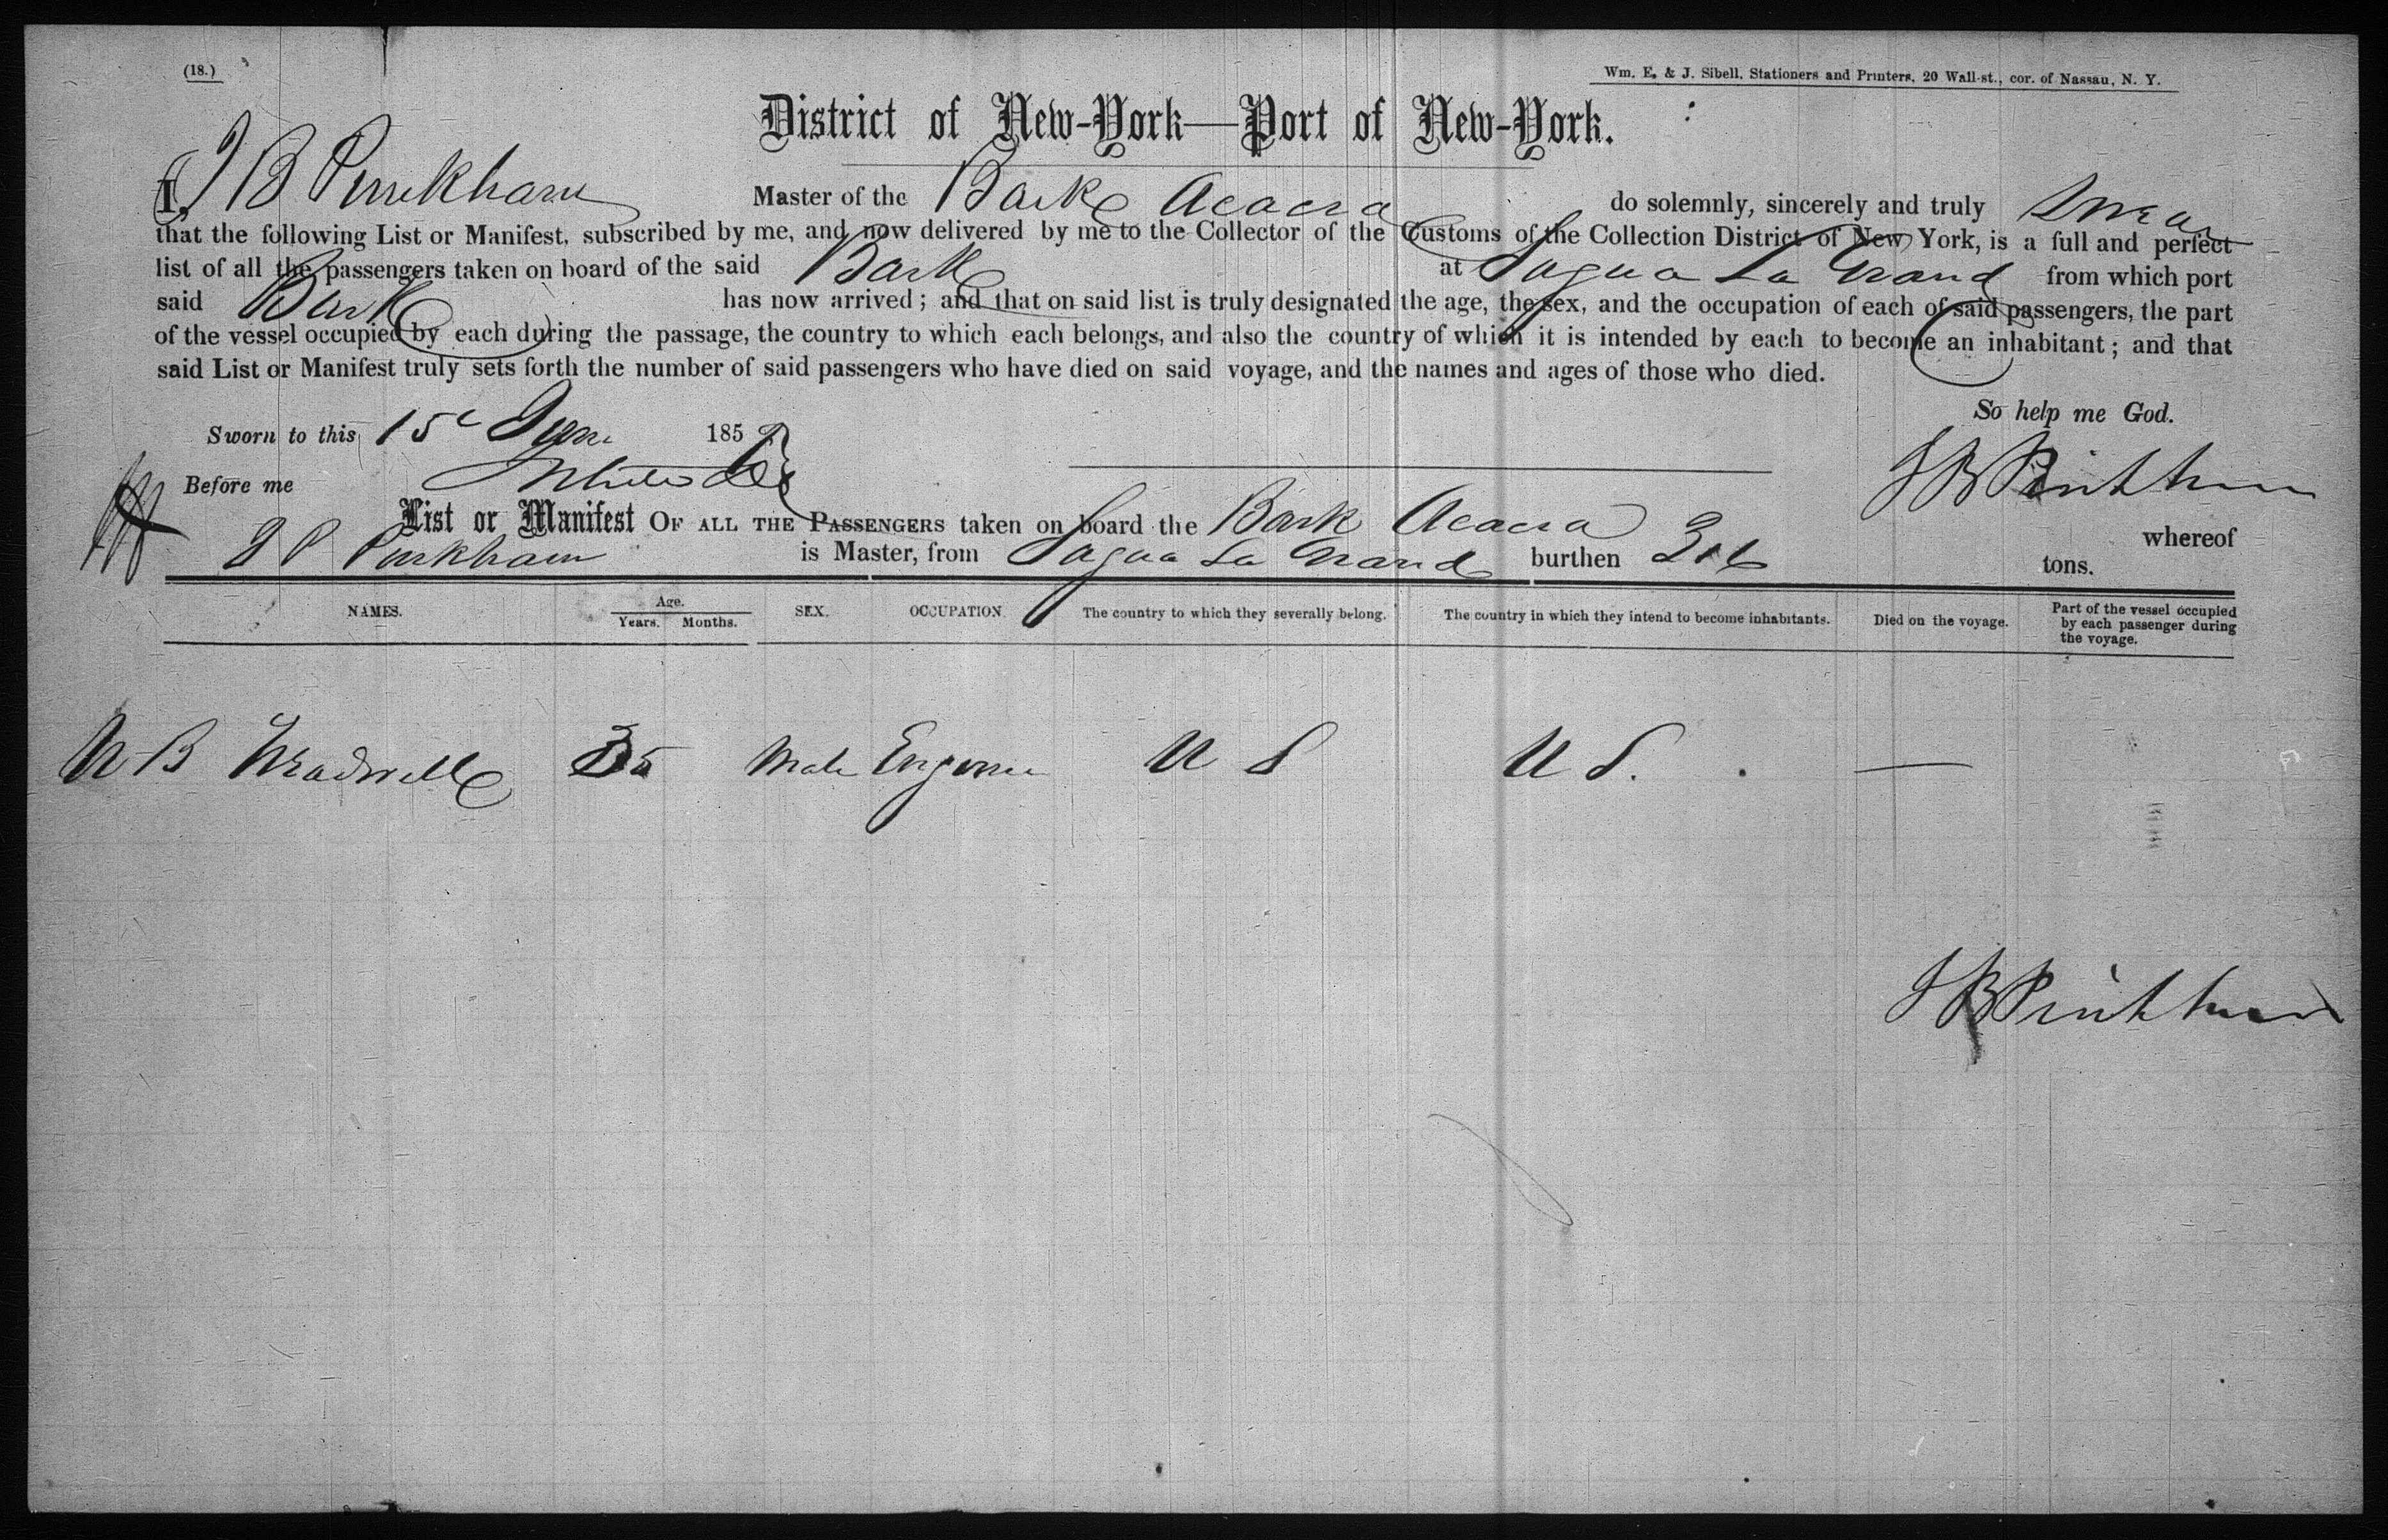 (18.)
Wm. E. & J. Sibell, Stationers and Printers, 20 Wall-st., cor. of Nassau, N. Y.
District of New-York—Port of New-York.
I, J B Pinkham Master of the Bark Acacia do solemnly, sincerely and truly swear
that the following List or Manifest, subscribed by me, and now delivered by me to the Collector of the Customs of the Collection District of New York, is a full and perfect
list of all the passengers taken on board of the said Bark at Sagua La Grand from which port
said Bark has now arrived; and that on said list is truly designated the age, the sex, and the occupation of each of said passengers, the part
of the vessel occupied by each during the passage, the country to which each belongs, and also the country of which it is intended by each to become an inhabitant; and that
said List or Manifest truly sets forth the number of said passengers who have died on said voyage, and the names and ages of those who died.
So help me God.
Sworn to this 15 June 185
Before me
J B Pinkham
List or Manifest OF ALL THE PASSENGERS taken on board the Bark Acacia whereof
J P Pinkham is Master, from Sagua La Grand burthen 316 tons.
NAMES. Age. Years. Months. SEX. OCCUPATION. The country to which they severally belong. The country in which they intend to become inhabitants. Died on the voyage. Part of the vessel occupied by each passenger during the voyage.
B Treadwell 35 Male Engineer U S U S. —
J B Pinkham